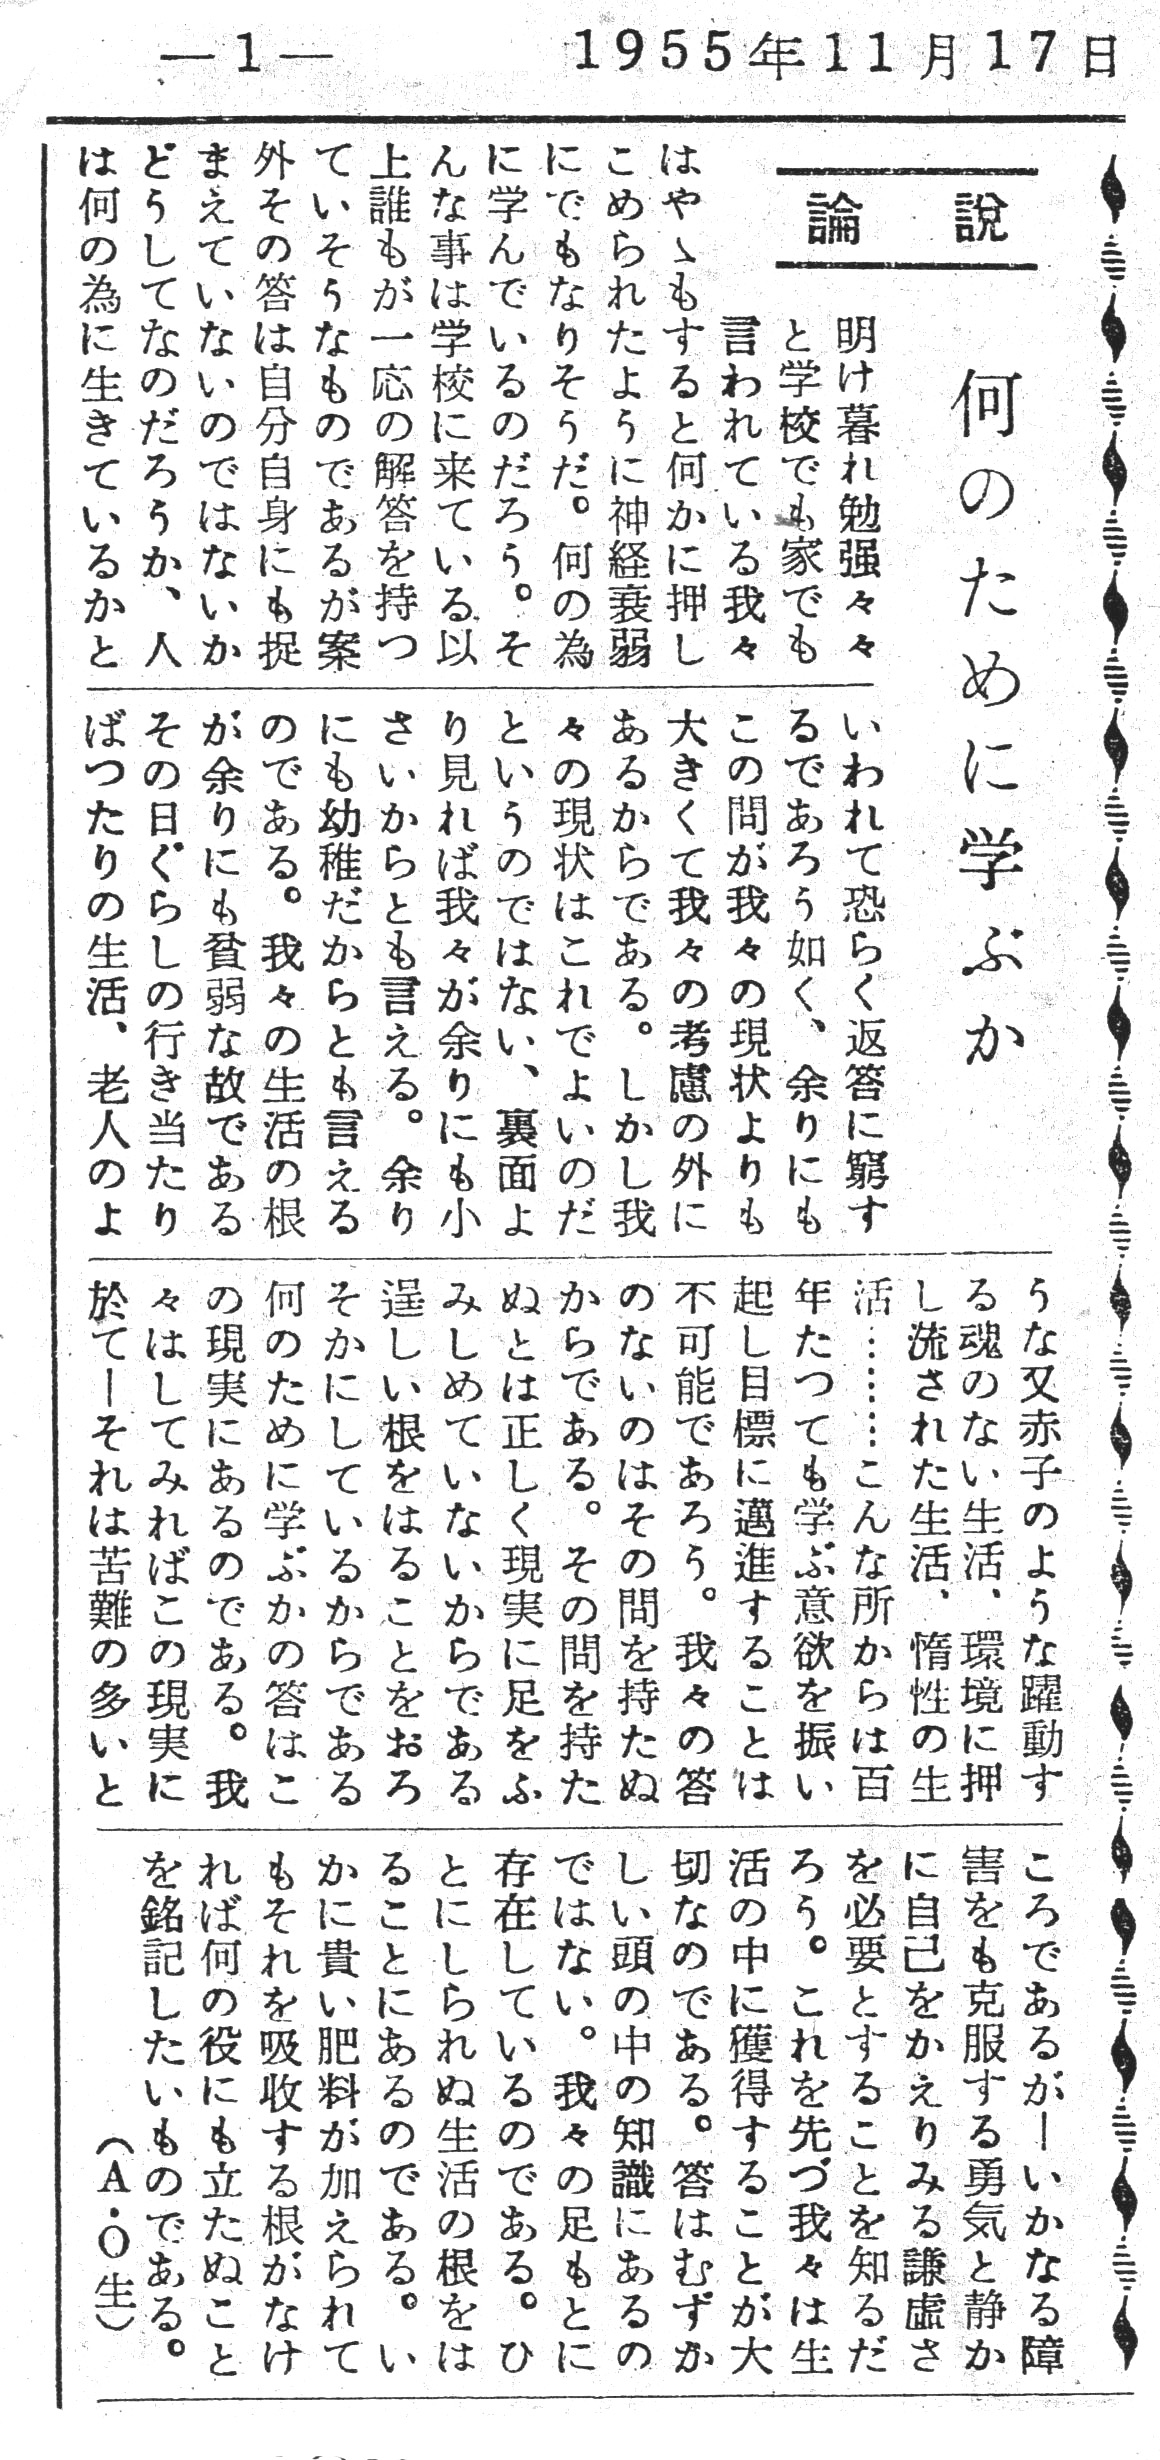 —1—
1955年11月17日
説論
何のために学ぶか
明け暮れ勉强々々
と学校でも家でも
言われている我々
はやゝもすると何かに押し
こめられたように神経衰弱
にでもなりそうだ。何の為
に学んでいるのだろう。そ
んな事は学校に来ている以
上誰もが一応の解答を持つ
ていそうなものであるが案
外その答は自分自身にも捉
まえていないのではないか
どうしてなのだろうか、人
は何の為に生きているかと
いわれて恐らく返答に窮す
るであろう如く、余りにも
この問が我々の現状よりも
大きくて我々の考慮の外に
あるからである。しかし我
々の現状はこれでよいのだ
というのではない、裏面よ
り見れば我々が余りにも小
さいからとも言える。余り
にも幼稚だからとも言える
のである。我々の生活の根
が余りにも貧弱な故である
その日ぐらしの行き当たり
ばつたりの生活、老人のよ
うな又赤子のような躍動す
る魂のない生活、環境に押
し流された生活、惰性の生
活………こんな所からは百
年たつても学ぶ意欲を振い
起し目標に邁進することは
不可能であろう。我々の答
のないのはその問を持たぬ
からである。その問を持た
ぬとは正しく現実に足をふ
みしめていないからである
逞しい根をはることをおろ
そかにしているからである
何のために学ぶかの答はこ
の現実にあるのである。我
々はしてみればこの現実に
於てーそれは苦難の多いと
ころであるがーいかなる障
害をも克服する勇気と静か
に自己をかえりみる謙虚さ
を必要とすることを知るだ
ろう。これを先づ我々は生
活の中に獲得することが大
切なのである。答はむずか
しい頭の中の知識にあるの
ではない。我々の足もとに
存在しているのである。ひ
とにしられぬ生活の根をは
ることにあるのである。い
かに貴い肥料が加えられて
もそれを吸收する根がなけ
れば何の役にも立たぬこと
を銘記したいものである。
（A・O生）